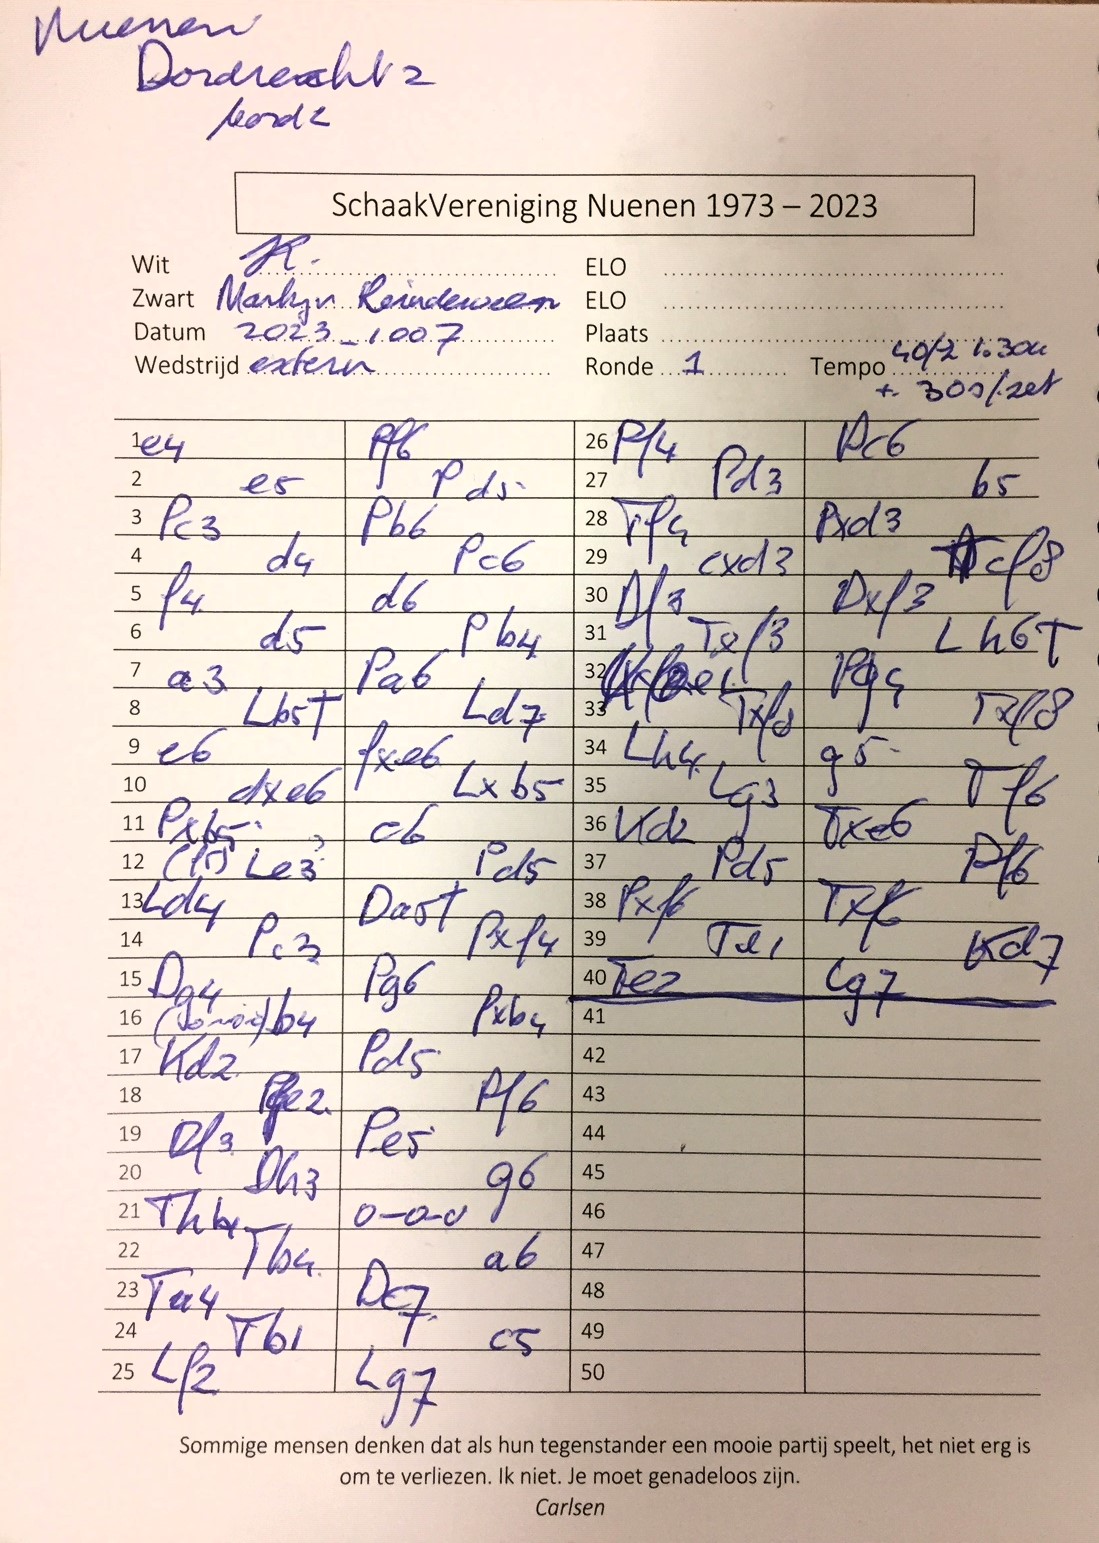 Nuenen
Dordrecht 2
bord 2
SchaakVereniging Nuenen 1973 – 2023
Wit ELO
Zwart Martijn ELO
Datum 2023_1007 Plaats
Wedstrijd extern Ronde 1 Tempo 40/2 1.30u
+ 30s/zet
1 e4 Pf6
2 e5 Pd5
3 Pc3 Pb6
4 d4 Pc6
5 f4 d6
6 d5 Pb4
7 a3 Pa6
8 Lb5† Ld7
9 e6 fxe6
10 dxe6 Lxb5
11 Pxb5 c6
12 Le3? Pd5
13 Ld4 Da5†
14 Pc3 Pxf4
15 Dg4 Pg6
16 b4 Pxb4
17 Kd2 Pd5
18 Pge2 Pf6
19 Df3 Pe5
20 Dh3 g6
21 Thb1 0-0-0
22 Tb4 a6
23 Ta4 Dc7
24 Tb1 c5
25 Lf2 Lg7
26 Pf4 Dc6
27 Pd3 b5
28 Tf4 Pxd3
29 cxd3 Tcf8
30 Df3 Dxf3
31 Txf3 Lh6†
32 Ke1 Pg4
33 Txf8 Txf8
34 Lh4 g5
35 Lg3 Tf6
36 Kd2 Txe6
37 Pd5 Pf6
38 Pxf6 Txf6
39 Te1 Kd7
40 Te2 Lg7
41
42
43
44
45
46
47
48
49
50
Sommige mensen denken dat als hun tegenstander een mooie partij speelt, het niet erg is
om te verliezen. Ik niet. Je moet genadeloos zijn.
Carlsen